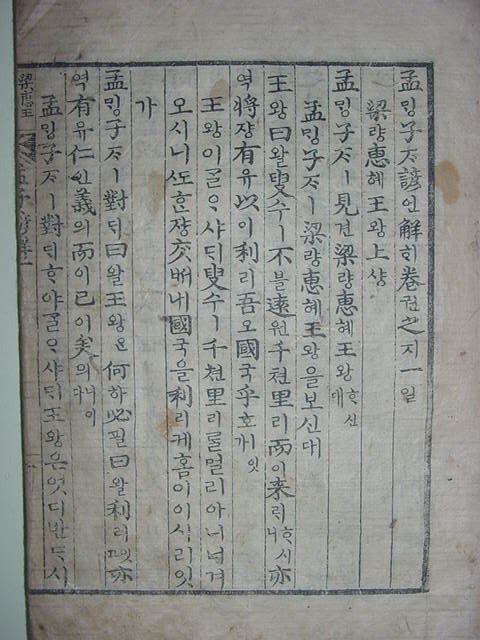 孟ᄆᆡᆼ子ᄌᆞ諺언解ᄒᆡ卷권之지一일
梁량惠혜王왕上샹
孟ᄆᆡᆼ子ᄌᆞㅣ見견梁량惠혜王왕ᄒᆞ신대
孟ᄆᆡᆼ子ᄌᆞㅣ梁량惠혜王왕을보신대
王왕曰왈叟수ㅣ不블遠원千쳔里리而이來ᄅᆡᄒᆞ시니亦
역將쟝有유以이利리吾오國국乎호잇가
王왕이ᄀᆞᆯᄋᆞ샤ᄃᆡ叟수ㅣ千쳔里리ᄅᆞᆯ멀리아니너겨
오시니ᄯᅩᄒᆞᆫ쟝ᄎᆞᆺ내國국을利리케홈이이시리잇
가
孟ᄆᆡᆼ子ᄌᆞㅣ對ᄃᆡ曰왈王왕은何하必필曰왈利리잇고亦
역有유仁인義의而이已이矣의니이다
孟ᄆᆡᆼ子ᄌᆞㅣ對ᄃᆡᄒᆞ야ᄀᆞᆯᄋᆞ샤ᄃᆡ王왕은엇디반ᄃᆞ시
梁惠王